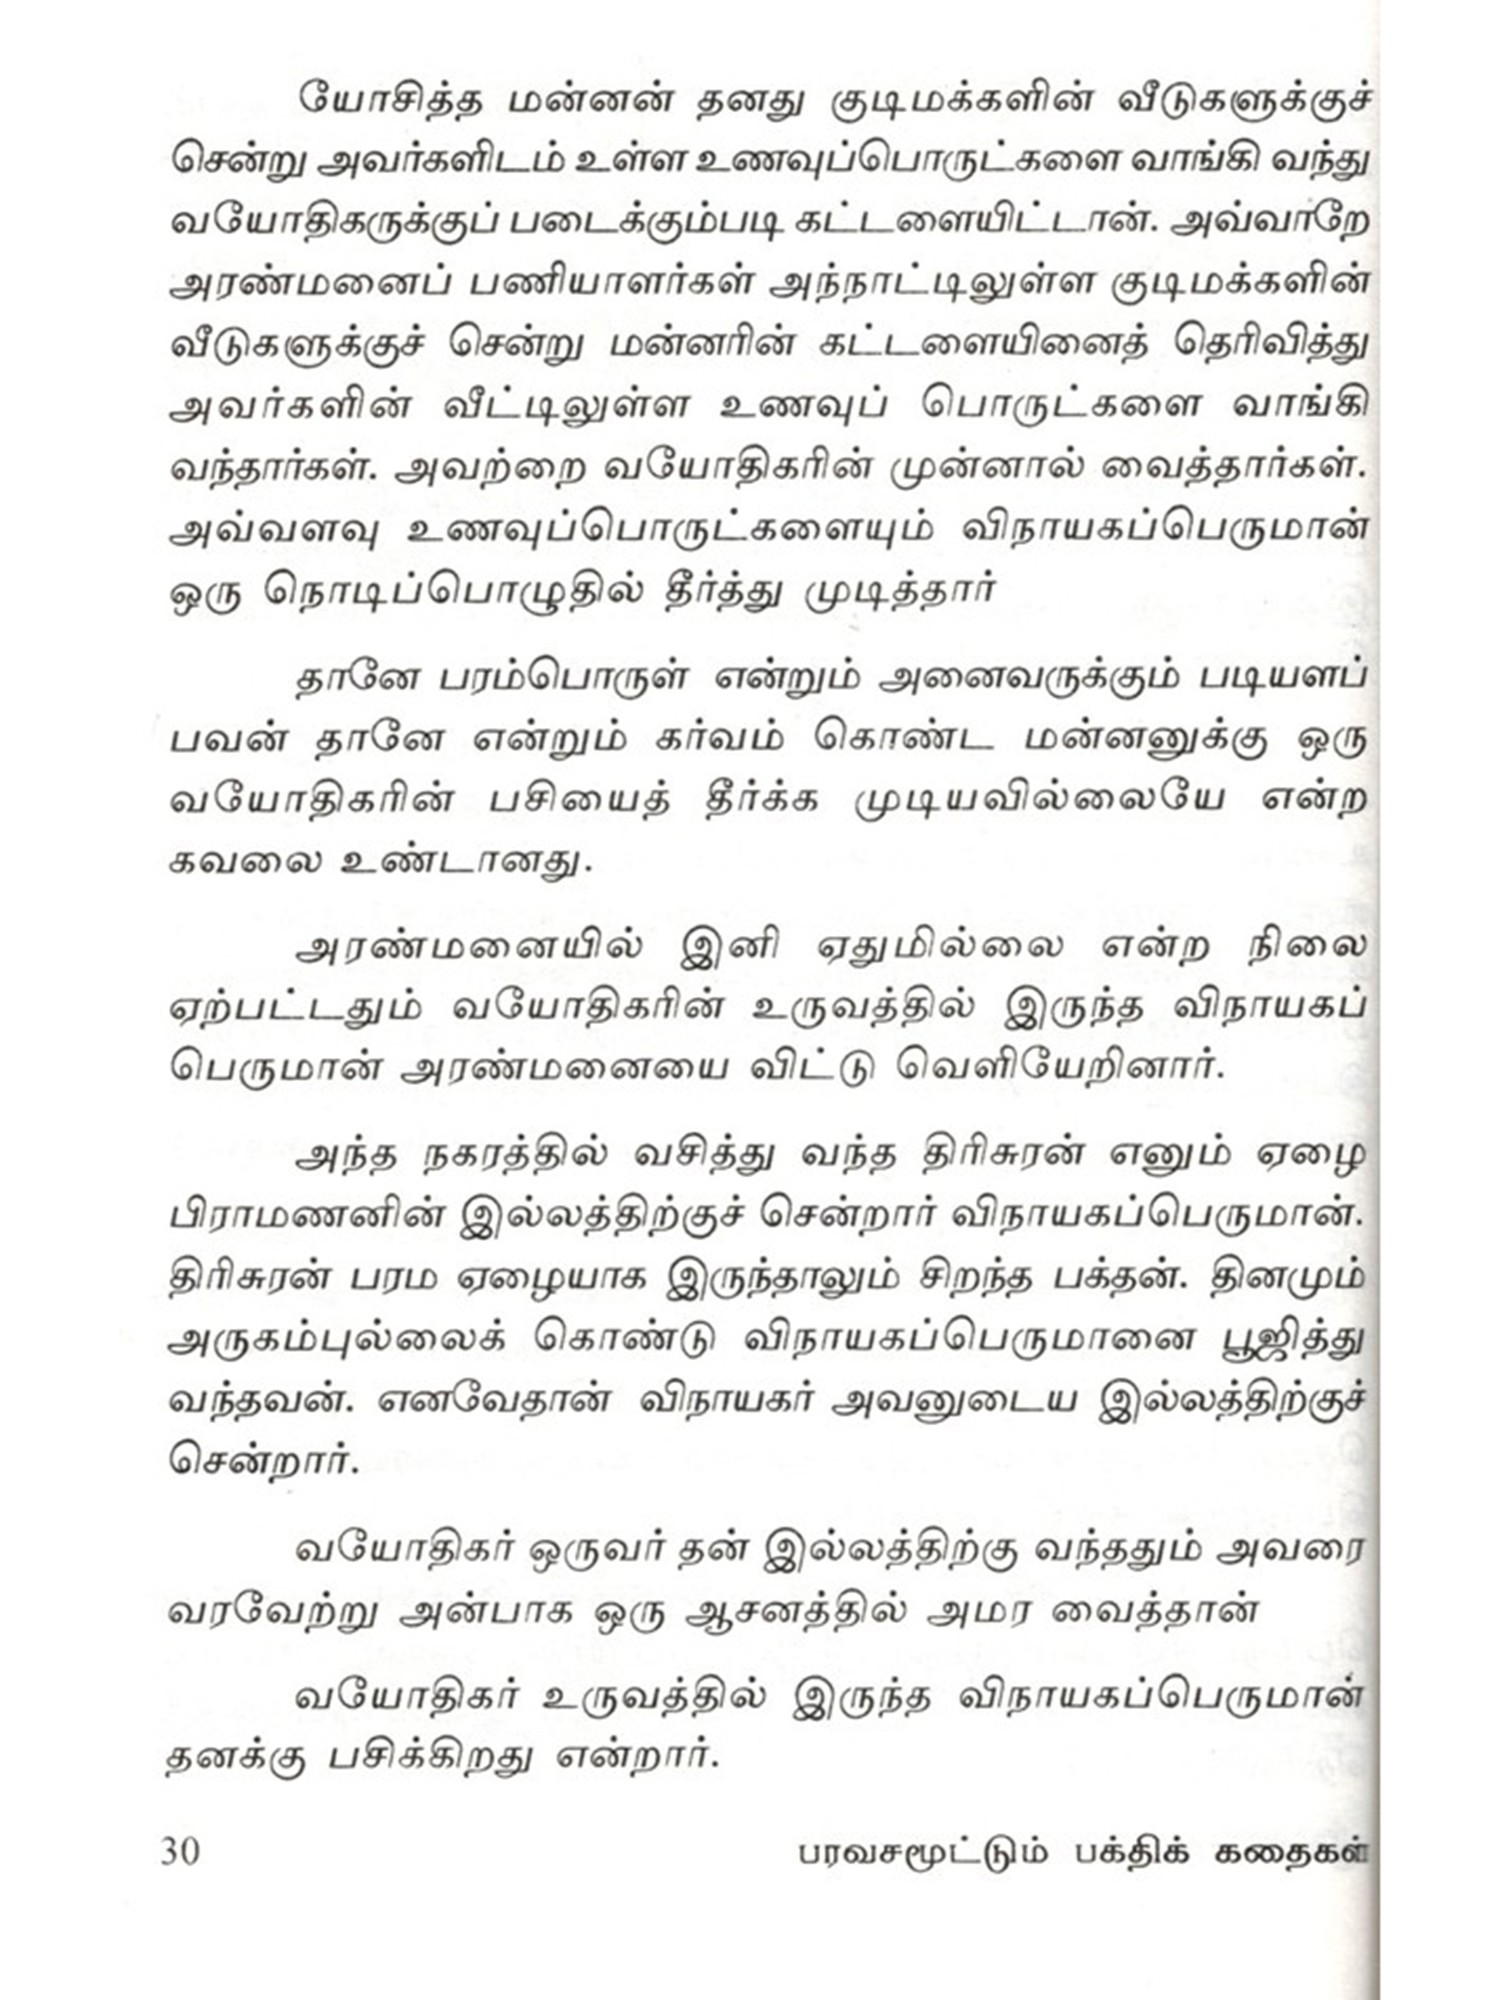 யோசித்த மன்னன் தனது குடிமக்களின் வீடுகளுக்குச்
சென்று அவர்களிடம் உள்ள உணவுப்பொருட்களை வாங்கி வந்து
வயோதிகருக்குப் படைக்கும்படி கட்டளையிட்டான். அவ்வாறே
அரண்மனைப் பணியாளர்கள் அந்நாட்டிலுள்ள குடிமக்களின்
வீடுகளுக்குச் சென்று மன்னரின் கட்டளையினைத் தெரிவித்து
அவர்களின் வீட்டிலுள்ள உணவுப் பொருட்களை வாங்கி
வந்தார்கள். அவற்றை வயோதிகரின் முன்னால் வைத்தார்கள்.
அவ்வளவு உணவுப்பொருட்களையும் விநாயகப்பெருமான்
ஒரு நொடிப்பொழுதில் தீர்த்து முடித்தார்
தானே பரம்பொருள் என்றும் அனைவருக்கும் படியளப்
பவன் தானே என்றும் கர்வம் கொண்ட மன்னனுக்கு ஒரு
வயோதிகரின் பசியைத் தீர்க்க முடியவில்லையே என்ற
கவலை உண்டானது.
அரண்மனையில் இனி ஏதுமில்லை என்ற நிலை
ஏற்பட்டதும் வயோதிகரின் உருவத்தில் இருந்த விநாயகப்
பெருமான் அரண்மனையை விட்டு வெளியேறினார்.
அந்த நகரத்தில் வசித்து வந்த திரிசுரன் எனும் ஏழை
பிராமணனின் இல்லத்திற்குச் சென்றார் விநாயகப்பெருமான்.
திரிசுரன் பரம ஏழையாக இருந்தாலும் சிறந்த பக்தன். தினமும்
அருகம்புல்லைக் கொண்டு விநாயகப்பெருமானை பூஜித்து
வந்தவன். எனவேதான் விநாயகர் அவனுடைய இல்லத்திற்குச்
சென்றார்.
வயோதிகர் ஒருவர் தன் இல்லத்திற்கு வந்ததும் அவரை
வரவேற்று அன்பாக ஒரு ஆசனத்தில் அமர வைத்தான்
வயோதிகர் உருவத்தில் இருந்த விநாயகப்பெருமான்
தனக்கு பசிக்கிறது என்றார்.
30 பரவசமூட்டும் பக்திக் கதைகள்